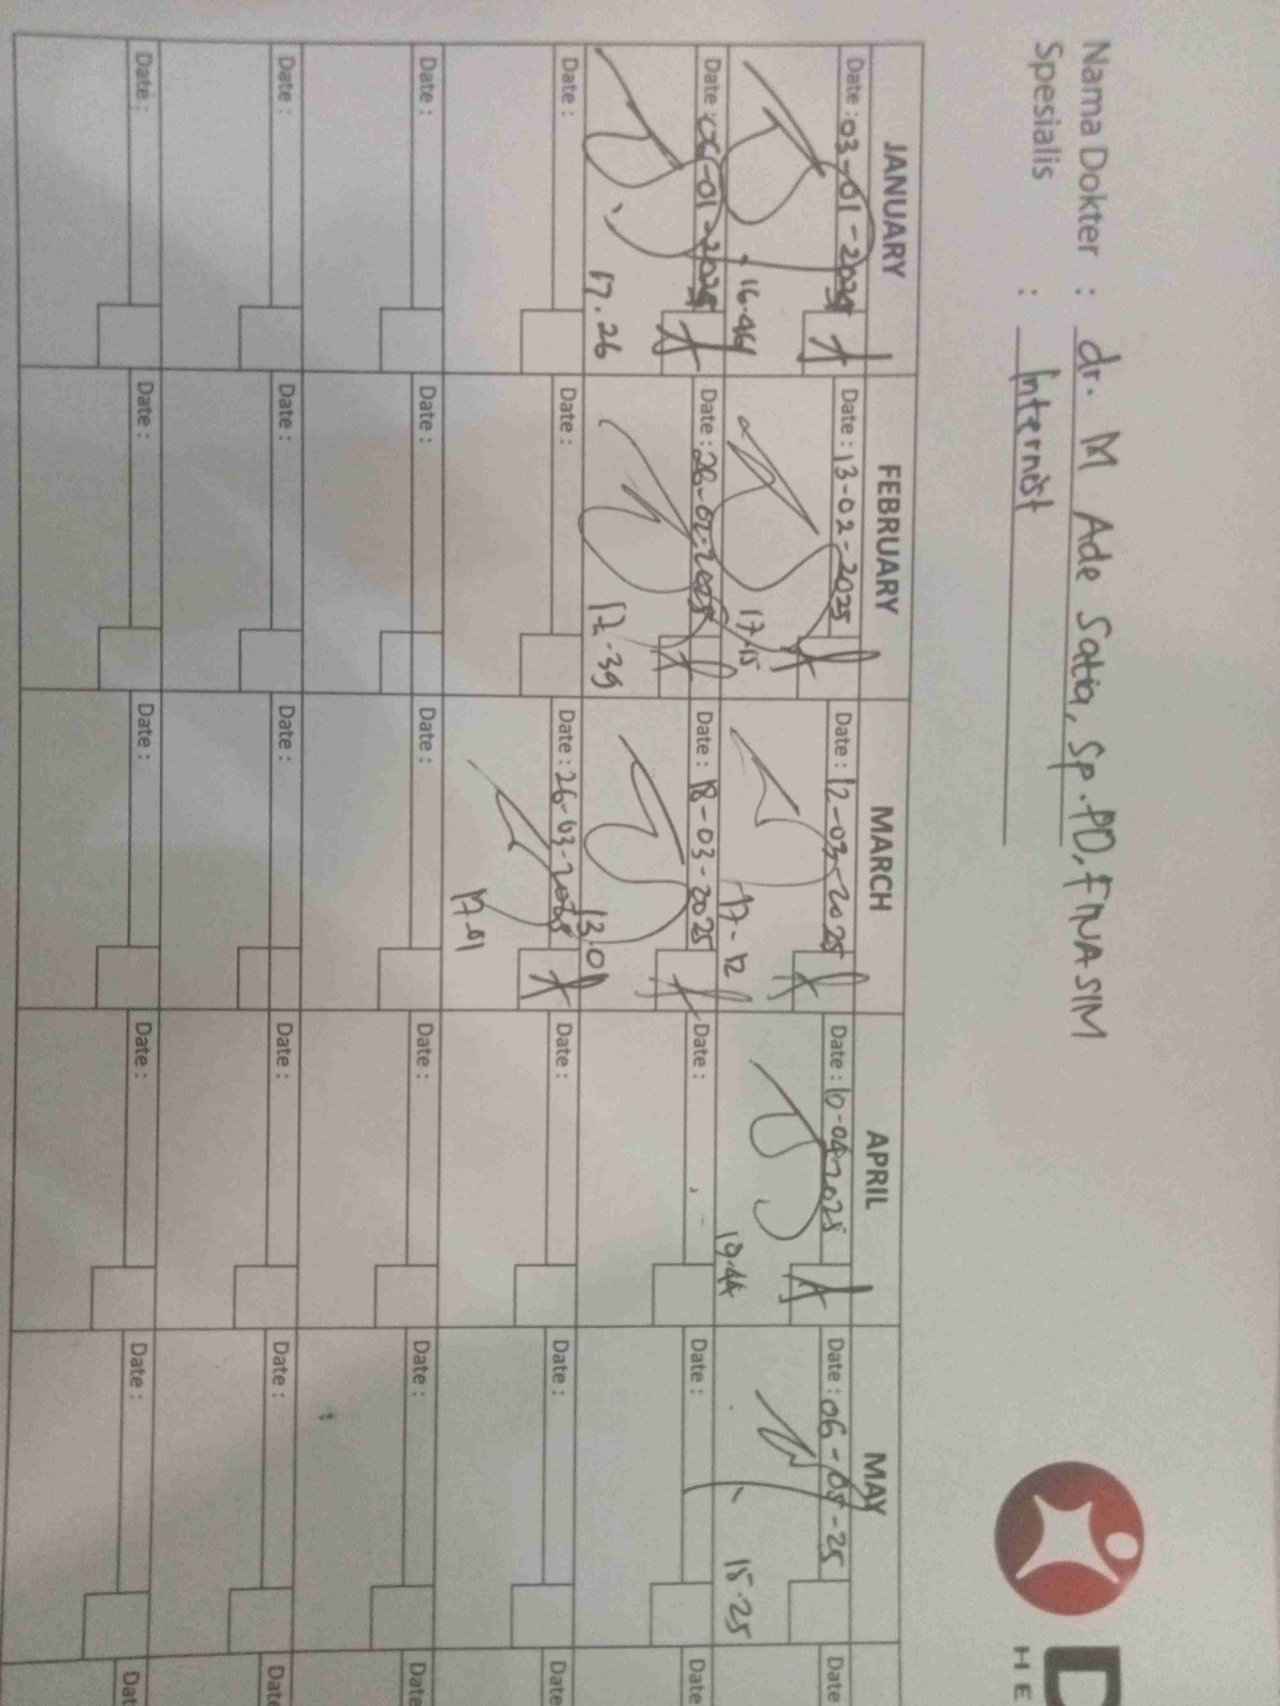 Nama Dokter : dr. M Ade Satia, Sp.PD, FINASIM
Spesialis : Internist
D
HE
JANUARY FEBRUARY MARCH APRIL MAY
Date : 03-01-2025 Date : 13-02-2025 Date : 12-03-2025 Date : 10-04-2025 Date : 06-05-25 Date
16.46 17.15 17-12 19.44 15.25
Date : 06-01-2025 Date : 28-02-2025 Date : 18-03-2025 Date : Date : Date
17.26 17.39 13.01
Date : Date : Date : 26-03-2025 Date : Date : Date
17.01
Date : Date : Date : Date : Date : Date
Date : Date : Date : Date : Date : Date
Date : Date : Date : Date : Date : Dat